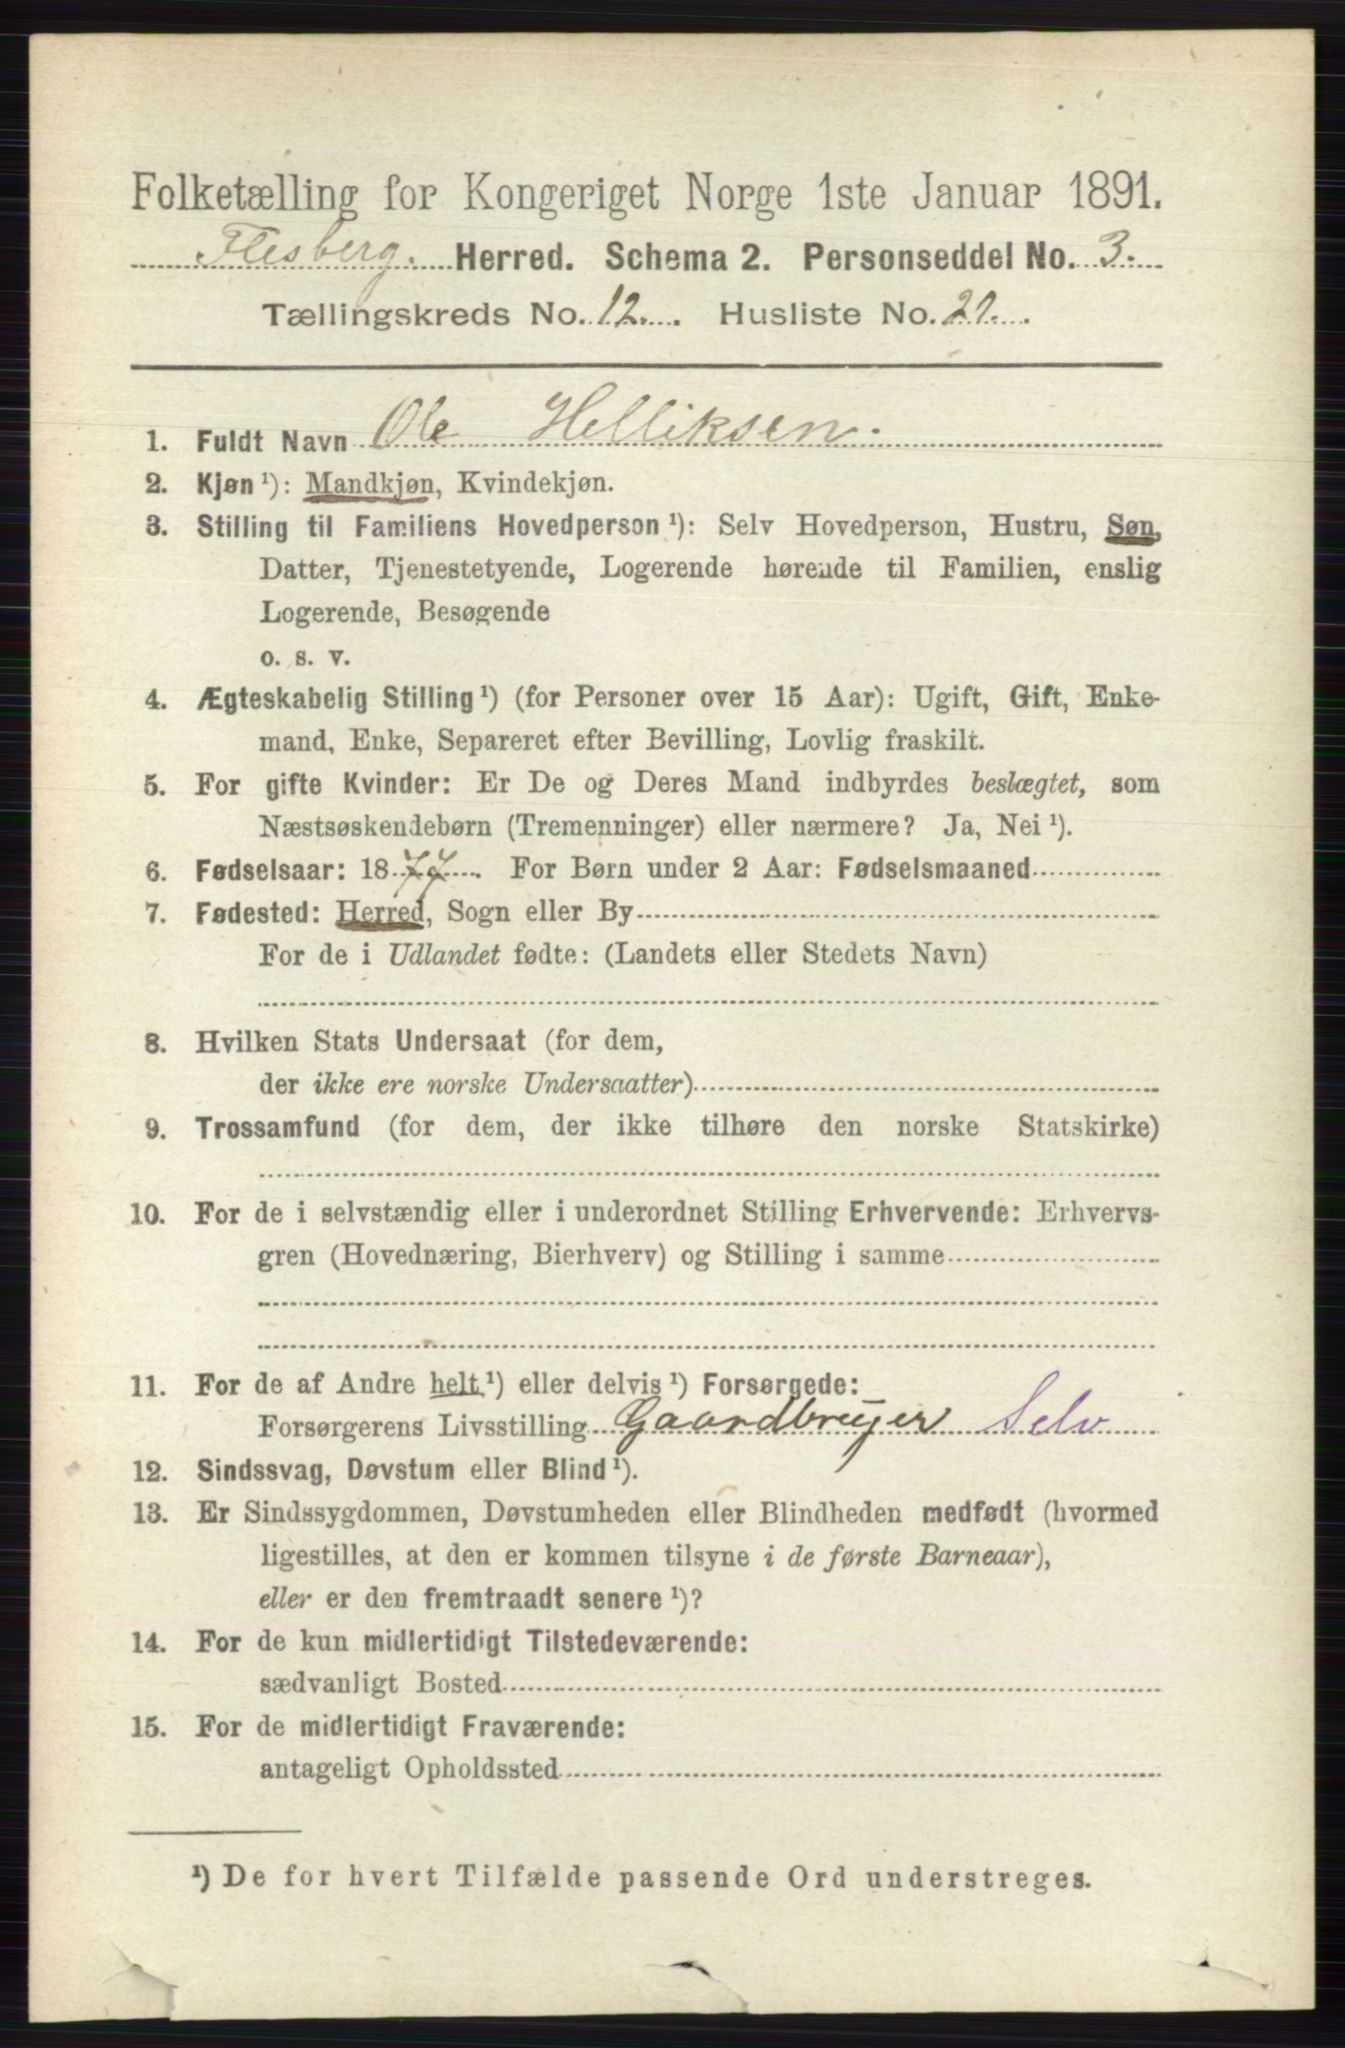 Folketælling for Kongeriget Norge 1ste Januar 1891.
Flesberg. Herred. Schema 2. Personseddel No. 3.
Tællingskreds No. 12. Husliste No. 27.
1. Fuldt Navn Ole Helliksen.
2. Kjøn ¹): Mandkjøn, Kvindekjøn.
3. Stilling til Familiens Hovedperson ¹): Selv Hovedperson, Hustru, Søn,
Datter, Tjenestetyende, Logerende hørende til Familien, enslig
Logerende, Besøgende
o. s. v.
4. Ægteskabelig Stilling ¹) (for Personer over 15 Aar): Ugift, Gift, Enke-
mand, Enke, Separeret efter Bevilling, Lovlig fraskilt.
5. For gifte Kvinder: Er De og Deres Mand indbyrdes beslægtet, som
Næstsøskendebørn (Tremenninger) eller nærmere? Ja, Nei ¹).
6. Fødselsaar: 1877. For Børn under 2 Aar: Fødselsmaaned
7. Fødested: Herred, Sogn eller By
For de i Udlandet fødte: (Landets eller Stedets Navn)
8. Hvilken Stats Undersaat (for dem,
der ikke ere norske Undersaatter)
9. Trossamfund (for dem, der ikke tilhøre den norske Statskirke)
10. For de i selvstændig eller i underordnet Stilling Erhvervende: Erhvervs-
gren (Hovednæring, Bierhverv) og Stilling i samme
11. For de af Andre helt ¹) eller delvis ¹) Forsørgede:
Forsørgerens Livsstilling Gaardbruger Selv
12. Sindssvag, Døvstum eller Blind ¹).
13. Er Sindssygdommen, Døvstumheden eller Blindheden medfødt (hvormed
ligestilles, at den er kommen tilsyne i de første Barneaar),
eller er den fremtraadt senere ¹)?
14. For de kun midlertidigt Tilstedeværende:
sædvanligt Bosted
15. For de midlertidigt Fraværende:
antageligt Opholdssted
¹) De for hvert Tilfælde passende Ord understreges.